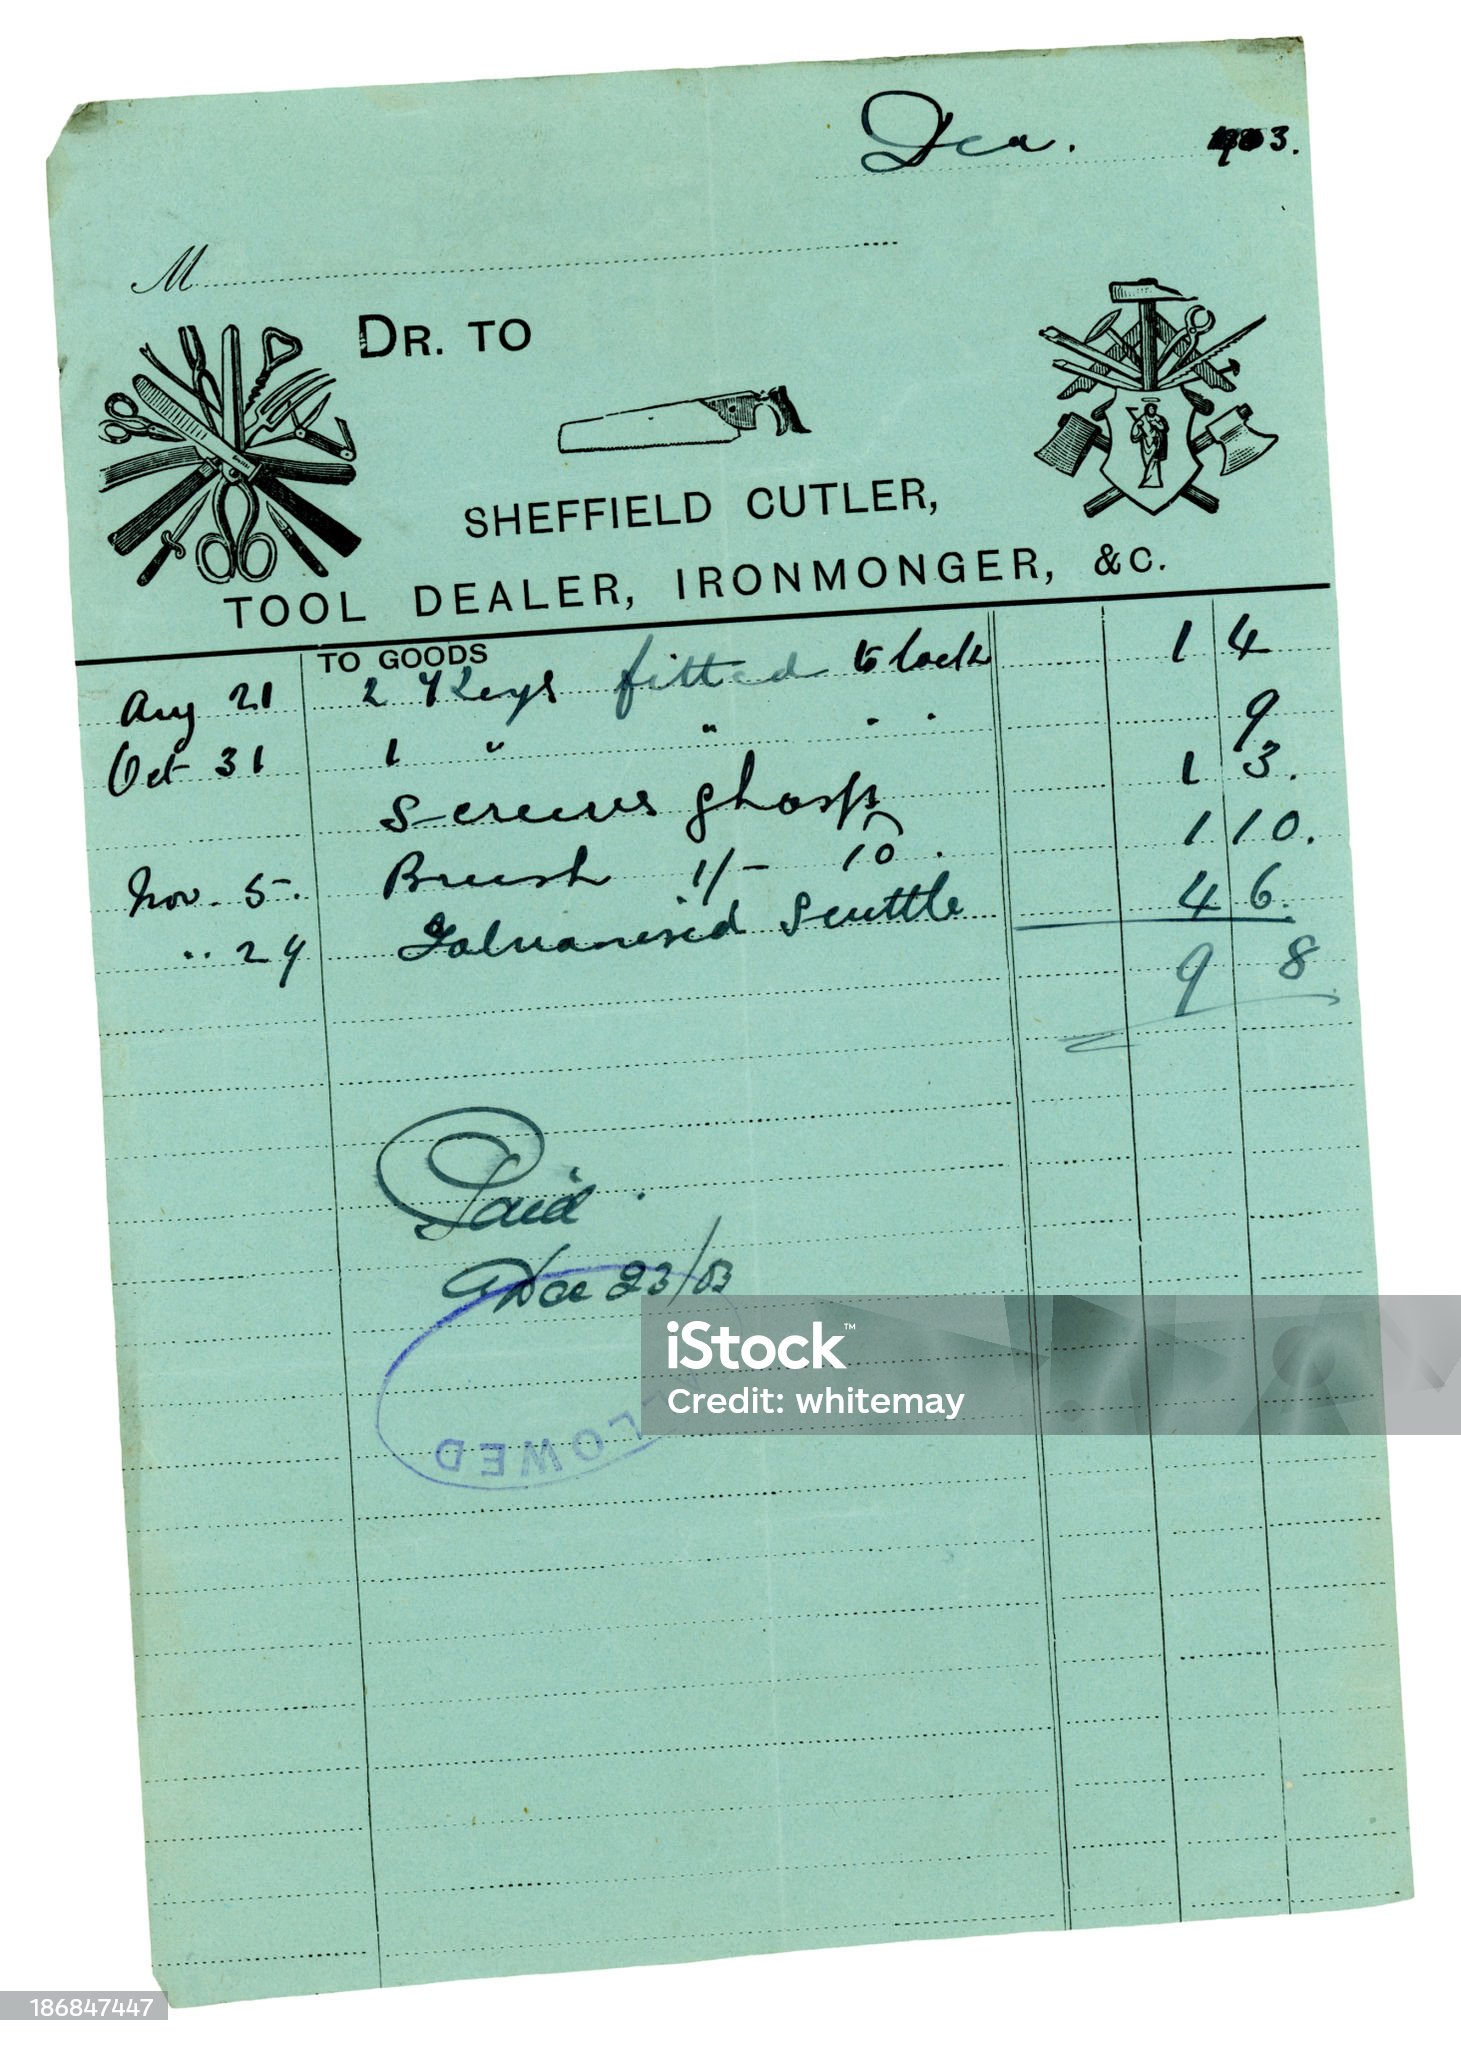 Dec. 1903.
M
DR. TO
SHEFFIELD CUTLER,
TOOL DEALER, IRONMONGER, &C.
TO GOODS
Aug 21 2 Keys fitted to lock 1 4
Oct 31 1 " " " " 9
Screws 1 3.
Nov. 5. Brush 1/- 10 1 10.
" 24 Galvanised Scuttle 4 6.
9 8
Paid.
Dec 23/03
ALLOWED
iStock™
Credit: whitemay
186847447